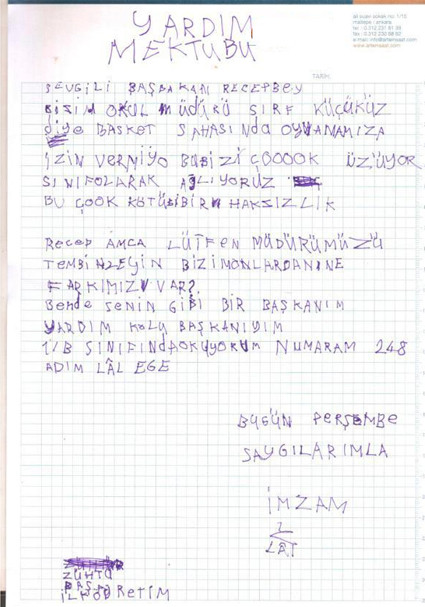 YARDIM
MEKTUBU
ali suavi sokak no: 1/10
maltepe / ankara
TARİH:
SEVGİLİ BAŞBAKAN RECEPBEY
BİZİM OKUL MÜDÜRÜ SIRF KÜÇÜKÜZ
DİYE BASKET SAHASINDA OYUNAMAMIZA
İZİN VERMİYO BUBİZİ ÇOOOOK ÜZÜYOR
SINIFOLARAK AĞLIYORUZ
BU ÇOOK KÖTÜBİBİR HAKSIZLIK
RECEP AMCA LÜTFEN MÜDÜRÜMÜZÜ
TEMBİHLEYİN BİZİMONLARDANNE
FARKIMIZVVAR?
BENDE SENİN GİBİ BİR BAŞKANIM
YARDIM KOLU BAŞKANIYIM
1/B SINIFINDAOKUYORUM NUMARAM 248
ADIM LÂL EGE
BUGÜN PERŞEMBE
SAYGILARIMLA
İMZAM
ZÜHTÜ
BAŞA
İLKÖĞRETİM